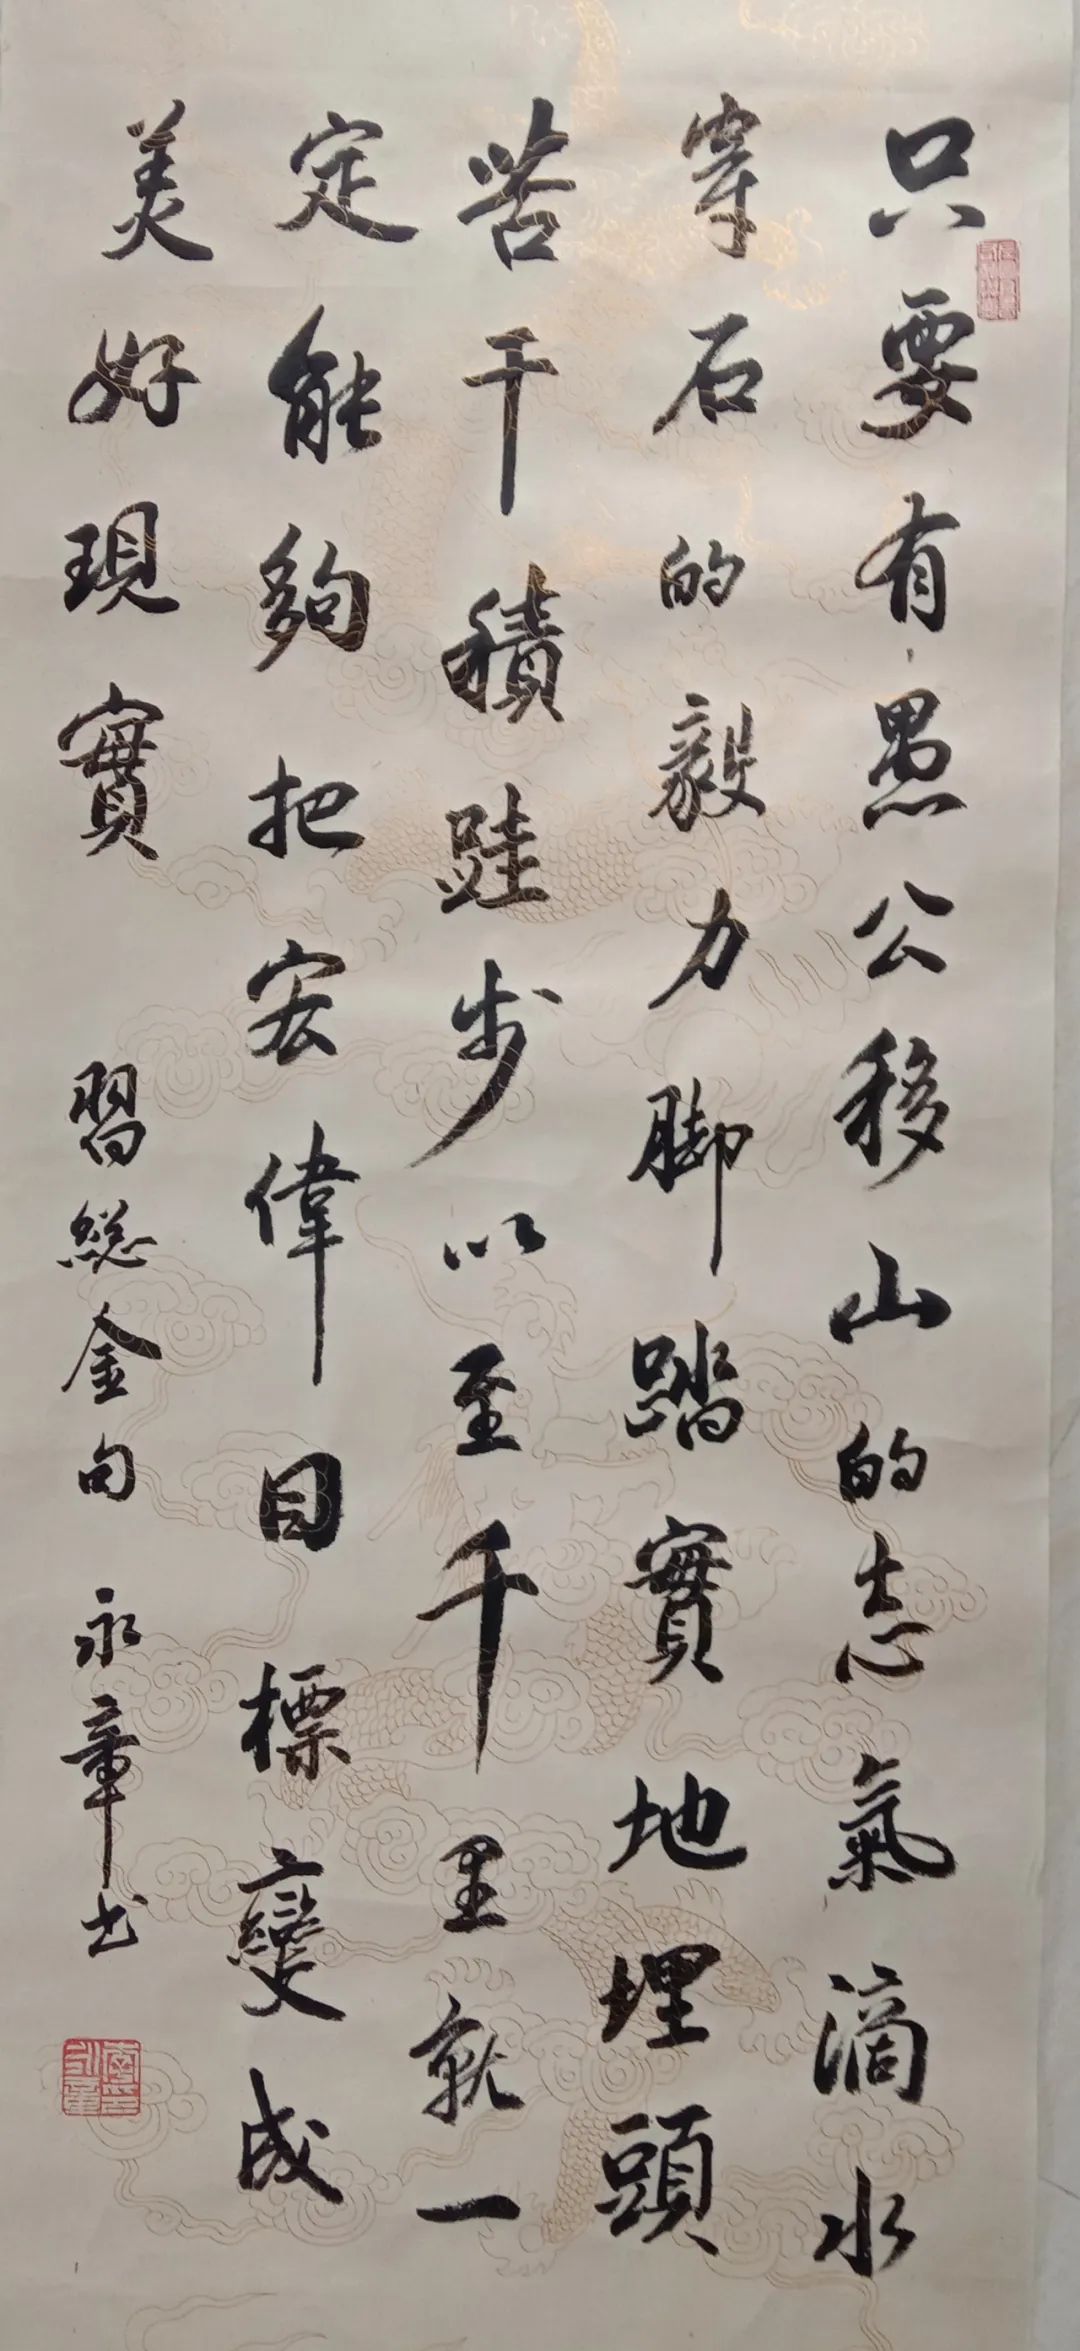 只要有愚公移山的志氣滴水
穿石的毅力脚踏實地埋頭
苦干積跬步以至千里就一
定能夠把宏偉目標變成
美好現實
習總金句 永章书